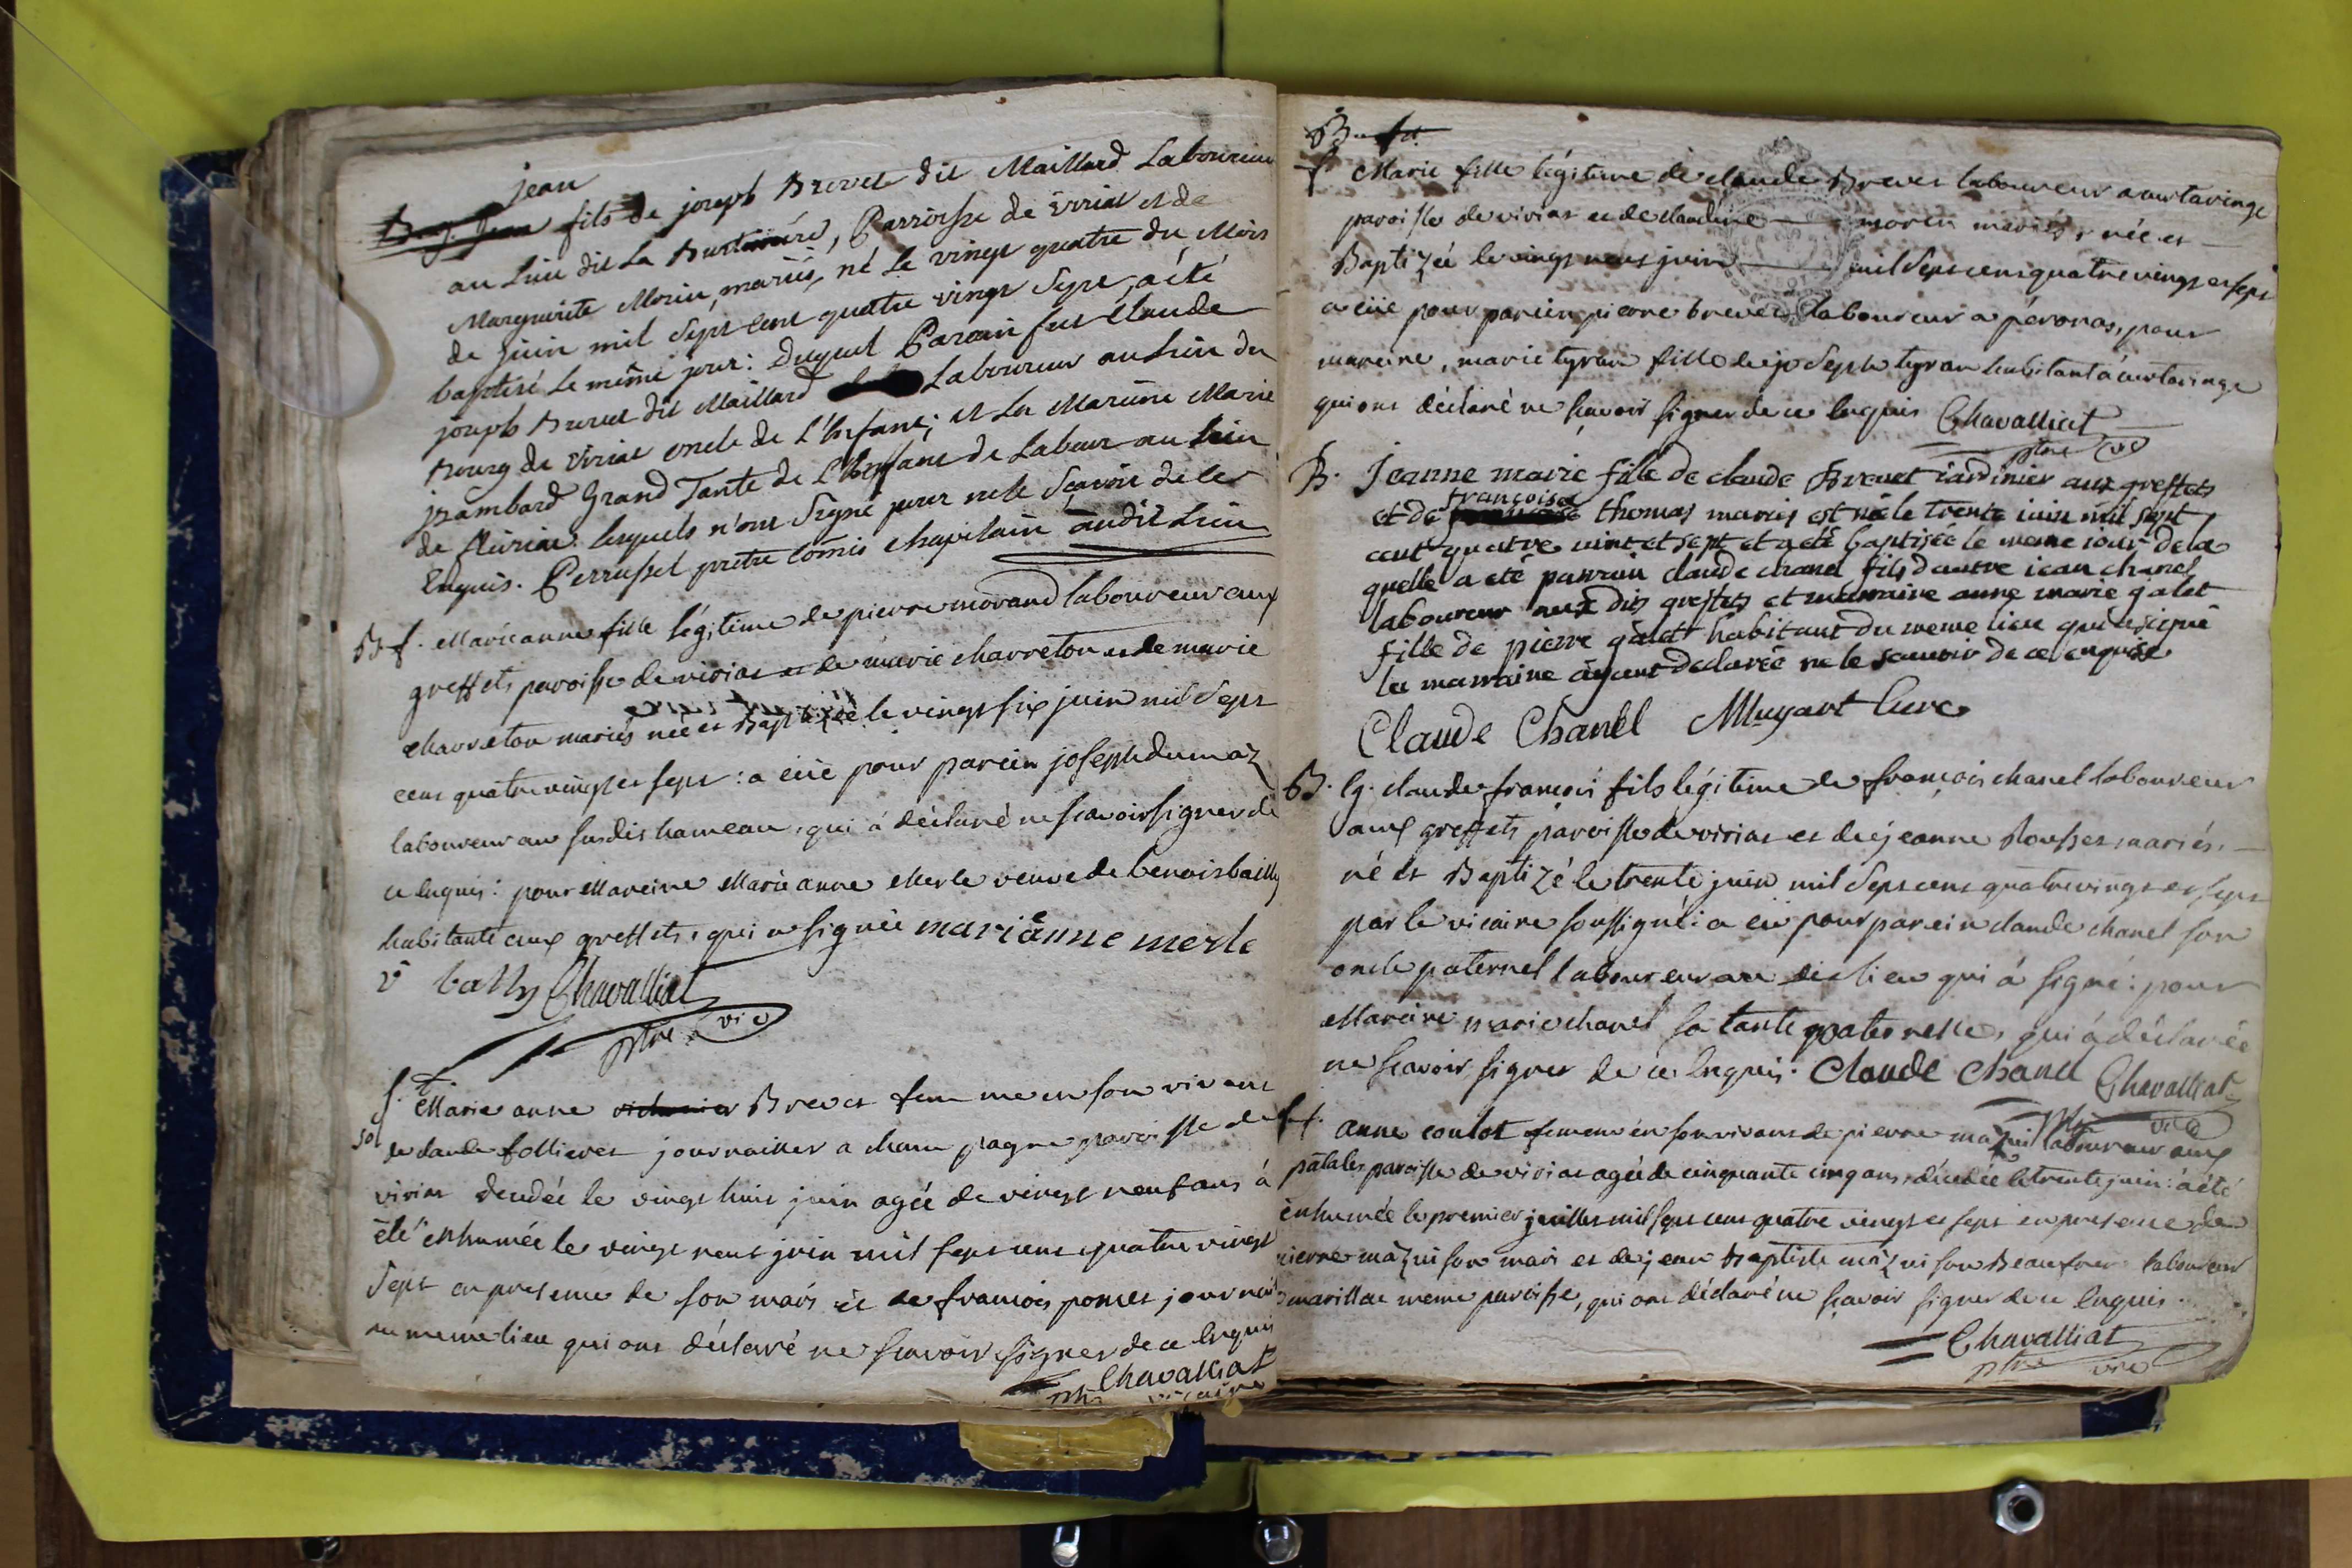 jean
fils de joseph Brevet dit Maillard Laboureur
au Lieu dit La , Parroisse de viriat et de
Marguerite Morin, mariés, né Le vingt quatre du Mois
de juin mil Sept cent quatre vingt Sept, a été
baptisé Le même jour: duquel Parain fut Claude
joseph Brevet dit Maillard Laboureur au Lieu du
Bourg de viriat oncle de L'Enfant; et La Maraine Marie
jzambard Grand Tante de L'Enfant de Labeur au Lieu
de fluriat: lesquels n'ont Signé pour ne le Scavoir de ce
Enquis. Perrusset pretre Comis Chapelain audit Lieu
B f. Marie anne fille légitime de pierre morand laboureur aux
greffets paroisse de viriat et de marie charreton et de marie
charreton mariés née et Baptizée le vingt six juin mil Sept
cent quatre vingt et sept: a eüe pour parein joseph dumaz
laboureur au susdit hameau, qui á déclaré ne scavoir signer de
ce Enquis: pour Mareine Marie anne Merle veuve de benoit bailly
habitante aux greffets, qui a signée marianne merle
v bally Chavalliat
ptre vic
f. t. Marie anne Brevet femme en son vivant
50 de claude follieret journallier a champagne paroisse de
viriat décédée le vingt huit juin agée de vingt neuf ans á
été enhumée le vingt neuf juin mil sept cent quatre vingt
Sept en presence de son mari et de francois poncet journalier
au meme lieu qui ont déclaré ne scavoir signer de ce Enquis
Chavalliat
ptre vicaire
B. f.
f. Marie fille légitime de claude Brevet laboureur a curtaringe
paroisse de viriat et de claudine morin mariés, née et
Baptizée le vingt neuf juin mil Sept cent quatre vingt et sept
a eüe pour parein pierre brevet laboureur a péronas, pour
mareine, marie tyran fille de joSeph tyran habitant á curtaringe
qui ont déclaré ne scavoir signer de ce Enquis Chavalliat
ptre vic
B. Jeanne marie fille de claude Brevet iardinier aux greffets
francoise
et de thomas mariés est née le trente iuin mil sept
cent quatre vint et sept et a été baptisée le meme iour de la
quelle a eté parrain claude chanel fils d'autre iean chanel
laboureur aux dits greffets et marraine anne marie galet
fille de pierre galet habitant du meme lieu qui a signé
la marraine áyant declarée ne le scauoir de ce enquise
Claude Chanel MMuyart Curé
B. lg. claude françois fils légitime de françois chanel laboureur
aux greffets paroisse de viriat et de jeanne Rousset mariés,
né et Baptizé le trente juin mil Sept cent quatre vingt et sept
par le vicaire soussigné: a eü pour parein claude chanel son
oncle paternel laboureur au dit lieu qui á signé: pour
Mareine marie chanel sa tante paternelle, qui á déclarée
ne scavoir signer de ce Enquis. Claude Chanel Chavalliat
ptre vic
f f. anne coulot femme en son vivant de pierre mazui laboureur aux
patales paroisse de viriat agée de cinquante cinq ans, décédée le trente juin: a été
enhumée le premier juillet mil sept cent quatre vingt et sept en presence de
pierre mazui son mari et de jean baptiste mazui son Beaufrere laboureur
a marillat meme paroisse, qui ont déclaré ne scavoir signer de ce Enquis.
Chavalliat
ptre vic